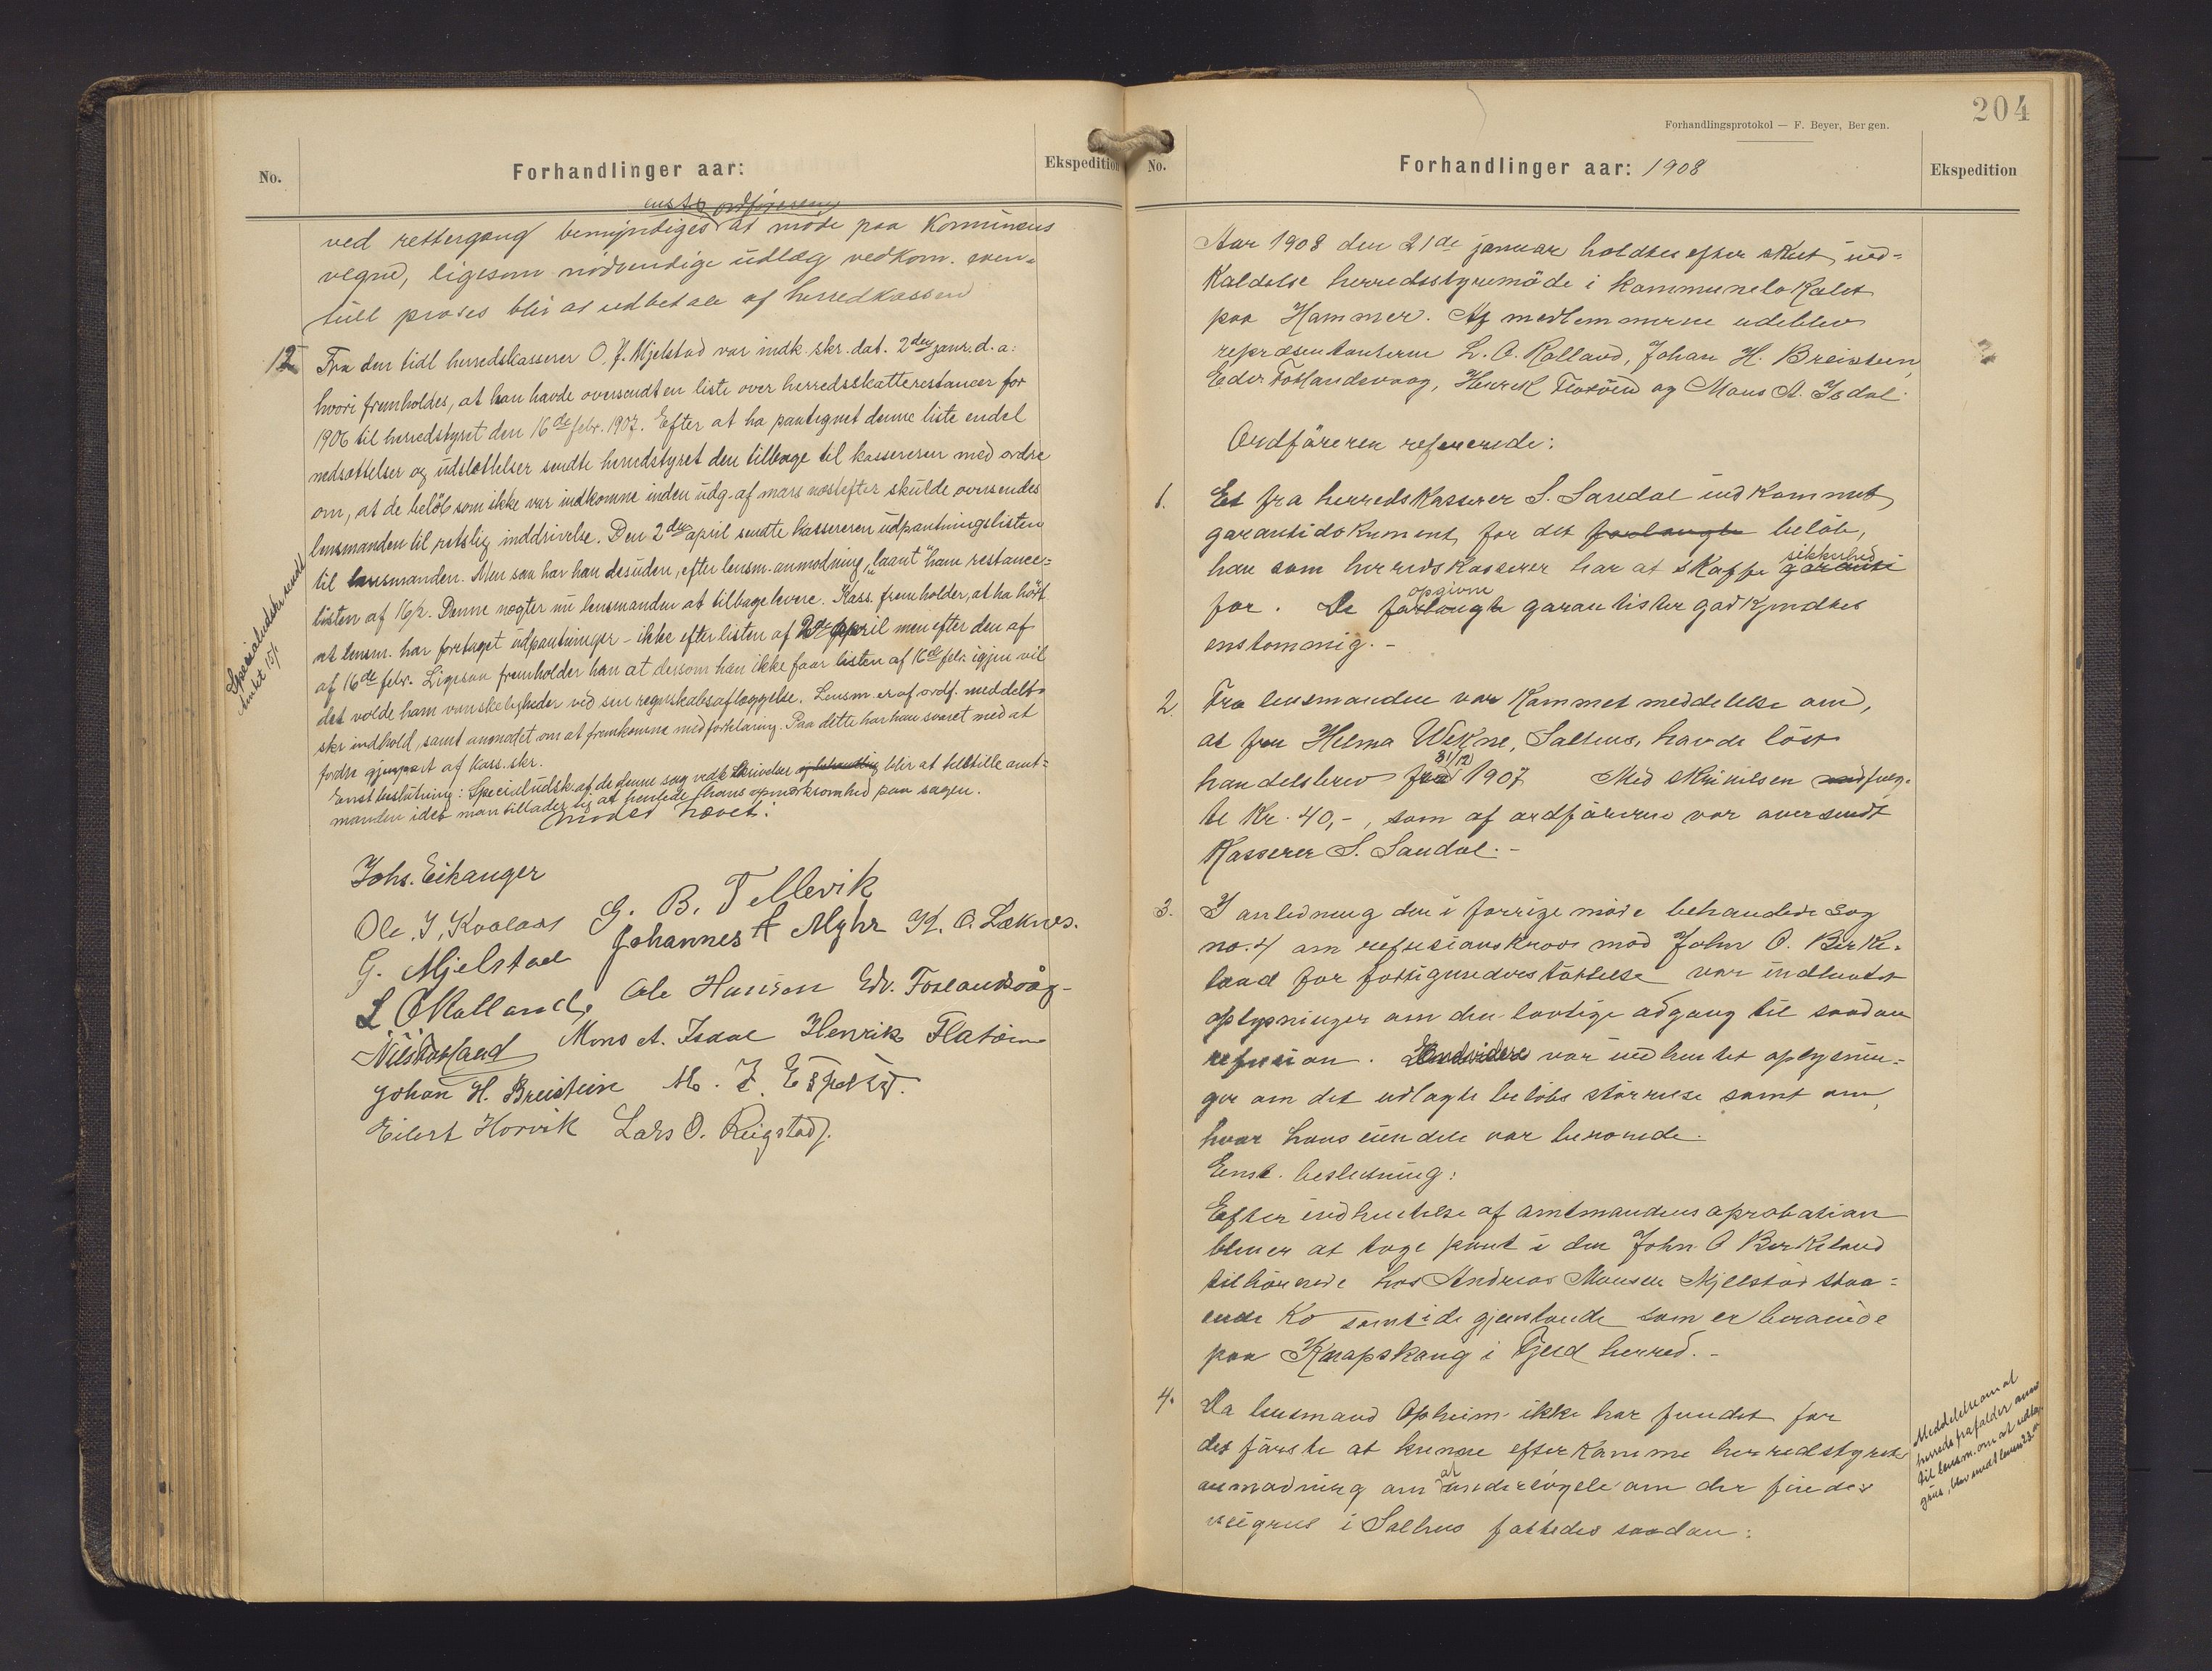 No.
Forhandlinger aar:
Ekspedition
ved rettergang bemyndiges at möde paa Kommunens
vegne, ligesom nödvendige udlæg vedkom. even-
tuell proses blir at udbetale af herredkassen
12 Fra den tidl herredskasserer O. J. Mjelstad var indk. skr. dat. 2den janr. d. a.
hvori fremholdes, at han havde oversendt en liste over herredsskatterestancer for
1906 til herredstyret den 16de febr. 1907. Efter at ha paategnet denne liste endel
nedsættelser og udslettelser sendte herredstyret den tilbage til kassereren med ordre
om, at de belöb som ikke var indkomne inden udg. af mars næstefter skulde oversendes
lensmanden til retslig inddrivelse. Den 2den april sendte kassereren udpantningslisten
til lensmanden. Men saa har han desuden, efter lensm. anmodning, „laant" ham restance-
listen af 16/2. Denne nægter nu lensmanden at tilbagelevere. Kass. fremholder, at ha hört
at lensm. har foretaget udpantninger - ikke efter listen af 2de april men efter den af
af 16de febr. Ligesaa fremholder han at dersom han ikke faar listen af 16de febr. igjen vil
det volde ham vanskeligheder ved sin regnskabsaflæggelse. Lensm. er af ordf. meddelt
skr indhold, samt anmodet om at fremkomme med forklaring. Paa dette har han svaret med at
fordre gjenpart af kass. skr.
Enst beslutning: Specialudsk. af de denne sag vedk skrivelser og behandling blir at tilstille amt-
manden idet man tillader sig at henlede hans opmærksomhed paa sagen.
Mödet hævet.
Specialudskr sendt
Amtet 15/1
Johs. Eikanger
Ole. J. Kvalaas G. B. Tellevik
G. Mjelstad Johannes A Myhr K. O. Læknes.
L. O Kolland, Ole Hansen Edv. Foslandsvåg
Mons A. Isdal Henrik Flatöen
Johan H. Breistein M. J. Espelid.
Eilert Horvik Lars O. Reigstad.
204
Forhandlingsprotokol — F. Beyer, Bergen.
No.
Forhandlinger aar: 1908
Ekspedition
Aar 1908 den 21de januar holdtes efter skeet ind-
kaldelse herredsstyremöde i kommunelokalet
paa Hammer. Af medlemmerne udeblev
repræsentanterne L. O. Kolland, Johan H. Breistein,
Edv Foslandsvaag, Henrik Flatöen og Mons A. Isdal.
Ordföreren refererede:
1. Et fra herredskasserer S. Sandal indkommet
garantidokument for det forlangte belöb,
han som herredskasserer har at skaffe garanti sikkerhed
for. De forlangte opgivne garantister godkjendtes
enstemmig. -
2. Fra lensmanden var kommet meddelelse om,
at fru Helma Wekne, Salhus, havde löst
handelsbrev 31/12 1907 Med skrivelsen medfulg-
te Kr. 40,-, som af ordföreren var oversendt
Kasserer S. Sandal. -
3. I anledning den i forrige möde behandlede sag
no. 4 om refusionskrav mod John O. Birke-
land for fattigunderstöttelse var indhentet
oplysninger om den lovlige adgang til saadan
refusion. Endvidere var indhentet oplysnin-
ger om det udlagte belöbs störrelse samt om,
hvor hans eiendele var beroende.
Enst. beslutning:
Efter indhentelse af amtmandens aprobation
bliver at tage pant i den John O Birkeland
tilhörende hos Andreas Monsen Mjelstad staa-
ende ko samt i de gjenstande som er beroende
paa Knapskaug i Fjeld herred. -
4. Da lensmand Opheim ikke har fundet for
det förste at kunne efterkomme herredstyrets
anmodning om at undersögele om der findes
veigrus i Salhus fattedes saadan:
Meddelelse om at
til lensm. om at udlæg